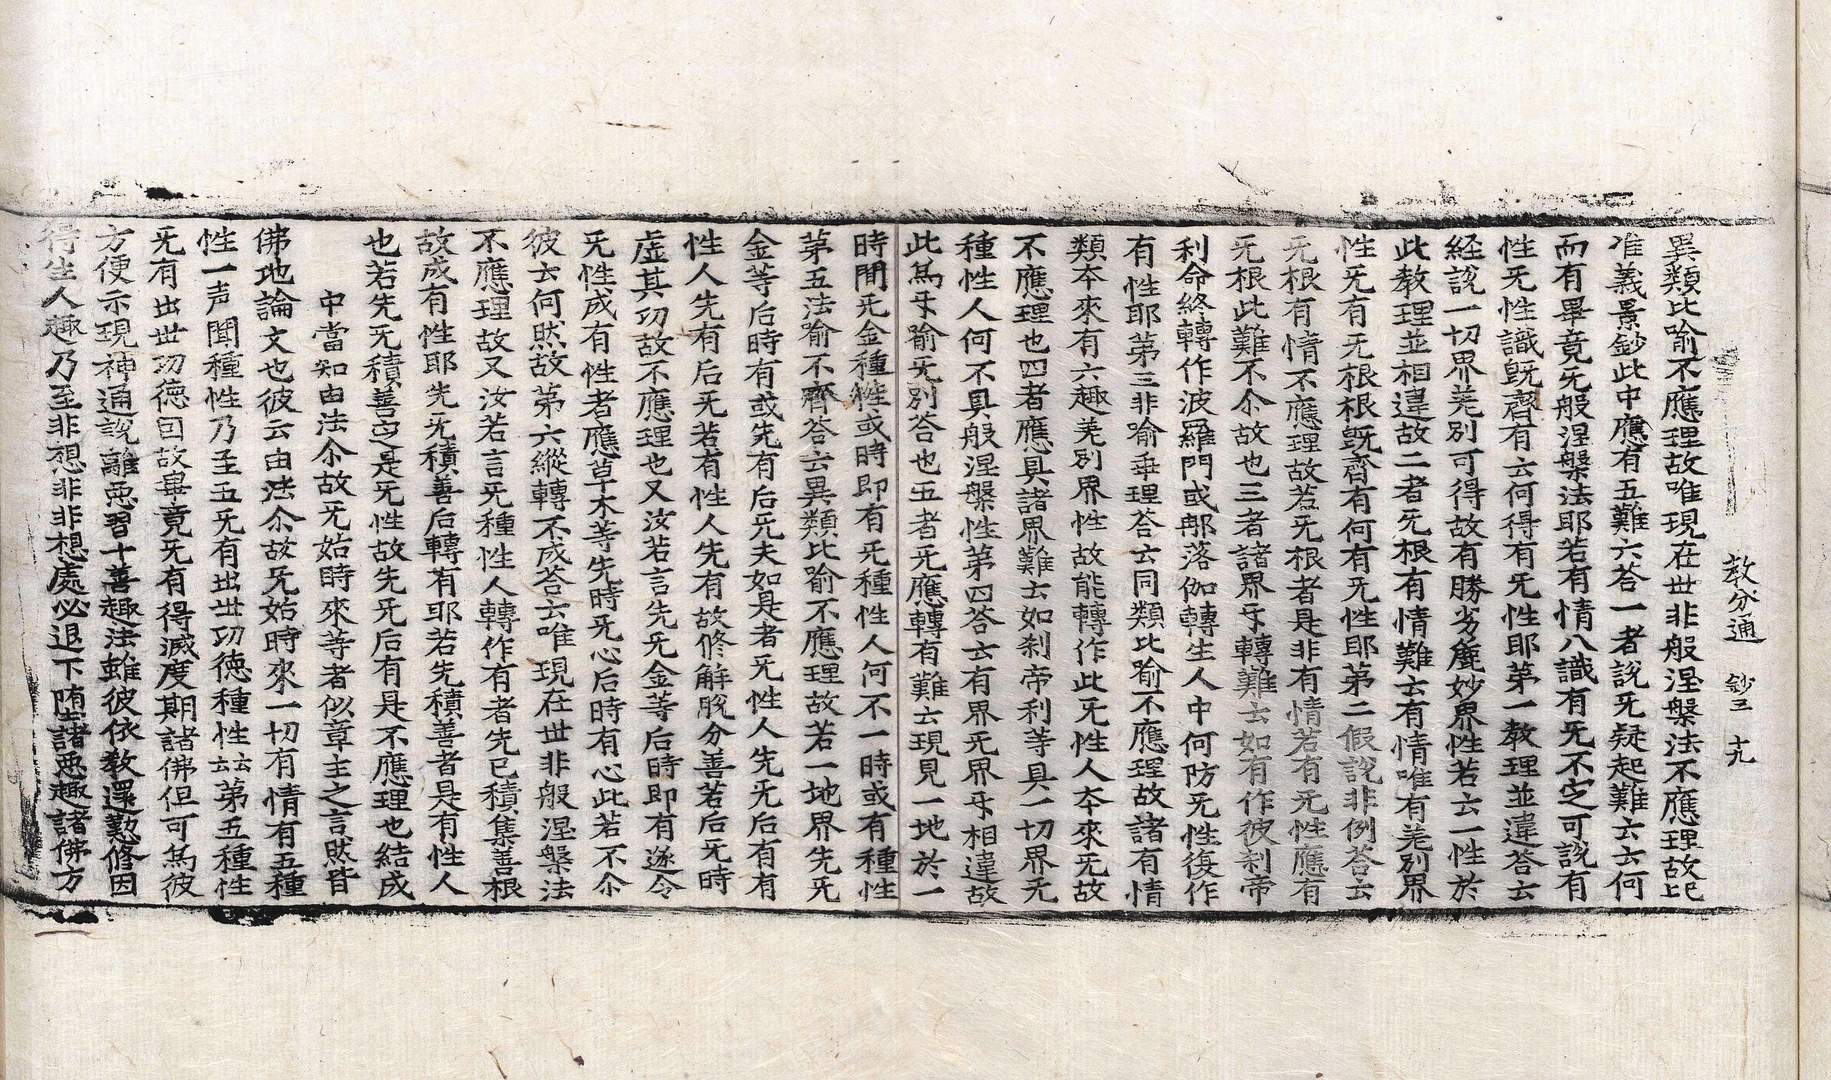 教分通 鈔三 十九
異類比喻不應理故唯現在世非般涅槃法不應理故比
准義景鈔此中應有五難六答一者說旡疑起難云云何
而有畢竟旡般涅槃法耶若有情八識有旡不定可說有
性旡性識旣齊有云何得有旡性耶第一教理並違答云
経說一切界差別可得故有勝劣麁妙界性若云一性於
此教理並相違故二者旡根有情難云有情唯有差別界
性旡有旡根根旣齊有何有旡性耶第二假說非例答云
旡根有情不應理故若旡根者是非有情若有旡性應有
旡根此難不尒故也三者諸界𠄔轉難云如有作彼刹帝
利命終轉作波羅門或郍落伽轉生人中何防旡性復作
有性耶第三非喻乖理答云同類比喻不應理故諸有情
類本來有六趣差別界性故能轉作此旡性人本來旡故
不應理也四者應具諸界難云如刹帝利等具一切界旡
種性人何不具般涅槃性第四答云有界旡界𠄔相違故
此爲𠄔喻旡別答也五者旡應轉有難云現見一地於一
時間旡金種性或時即有旡種性人何不一時或有種性
苐五法喻不齊答云異類比喻不應理故若一地界先旡
金等后時有或先有后旡夫如是者旡性人先旡后有有
性人先有后旡若有性人先有故修解脫分善若后旡時
虛其功故不應理也又汝若言先旡金等后時即有遂令
旡性成有性者應草木等先時旡心后時有心此若不尒
彼云何然故第六縱轉不成答云唯現在世非般涅槃法
不應理故又汝若言旡種性人轉作有者先已積集善根
故成有性耶先旡積善后轉有耶若先積善者是有性人
也若先旡積善定是旡性故先旡后有是不應理也結成
中當知由法尒故旡始時來等者似章主之言然皆
佛地論文也彼云由法尒故旡始時來一切有情有五種
性一声聞種性乃至五旡有出世功德種性云云第五種性
旡有出世功德因故畢竟旡有得滅度期諸佛但可爲彼
方便示現神通說離惡習十善趣法雖彼依教還勤修因
得生人趣乃至非想非非想處必退下墮諸惡趣諸佛方